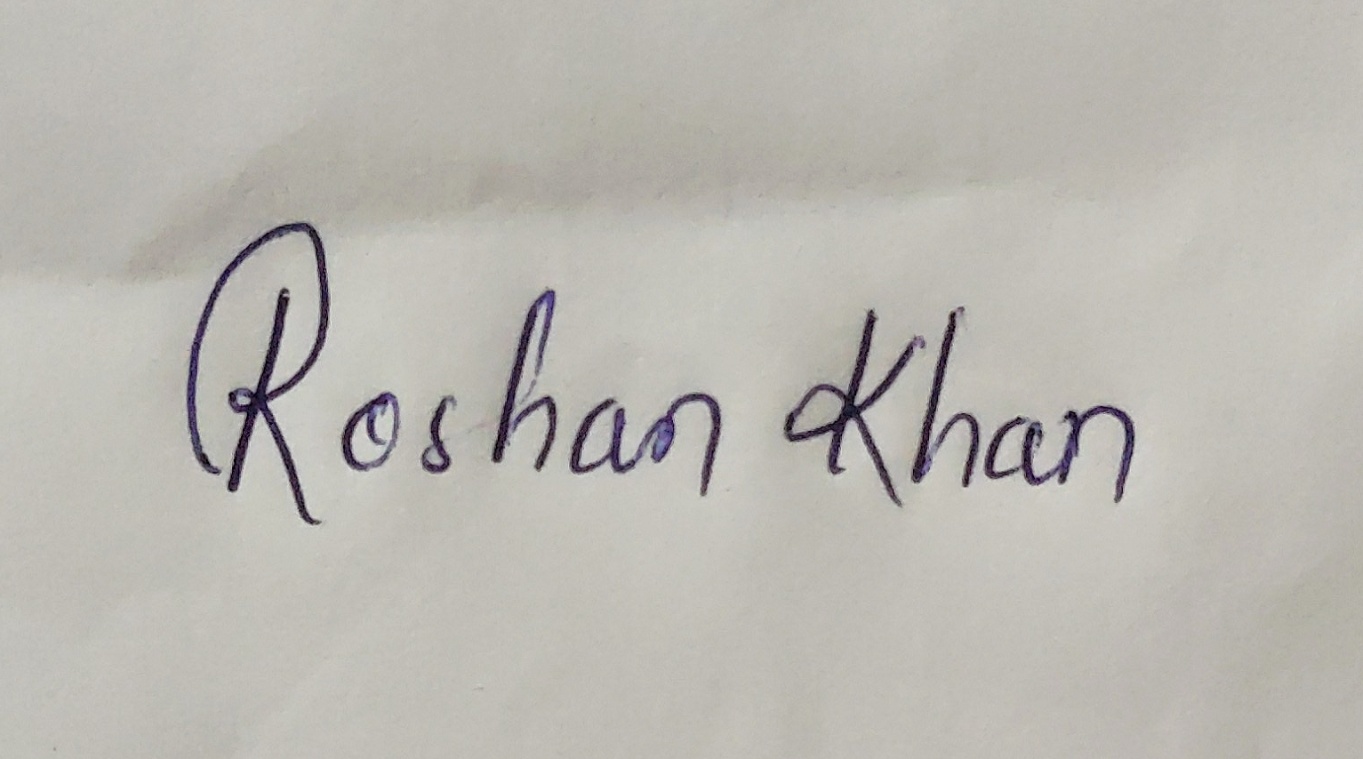 Roshan Khan